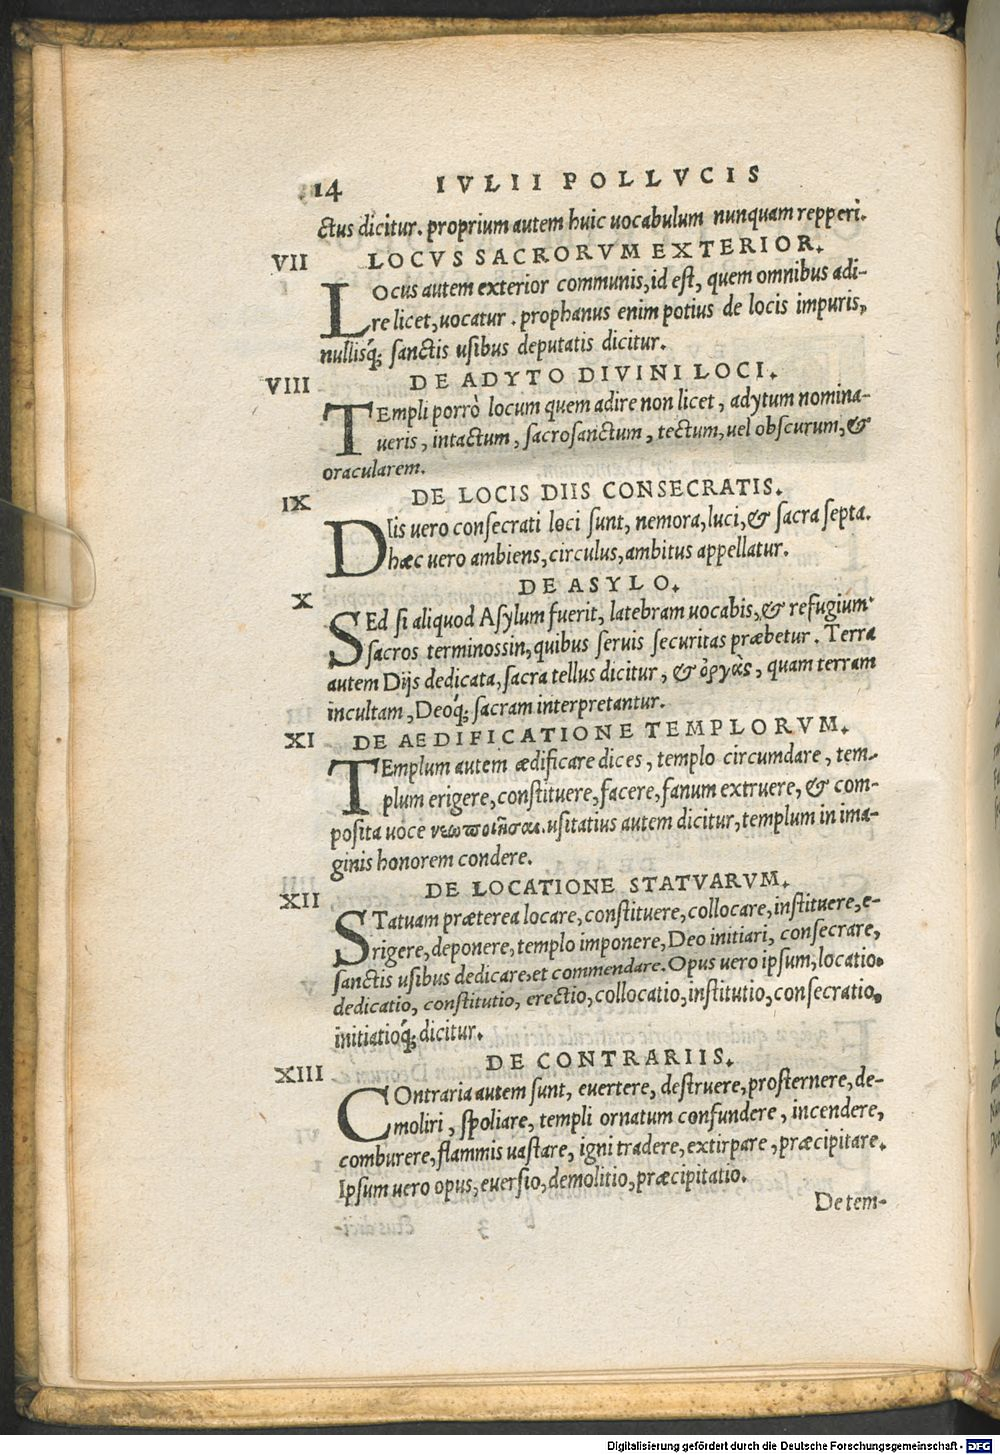 14 IVLII POLLVCIS
ctus dicitur. proprium autem huic uocabulum nunquam repperi.
VII LOCVS SACRORVM EXTERIOR.
LOcus autem exterior communis, id est, quem omnibus adi-
re licet, uocatur. prophanus enim potius de locis impuris,
nullisq; sanctis usibus deputatis dicitur.
VIII DE ADYTO DIVINI LOCI.
TEmpli porrò locum quem adire non licet, adytum nomina-
ueris, intactum, sacrosanctum, tectum, uel obscurum, &
oracularem.
IX DE LOCIS DIIS CONSECRATIS.
DIis uero consecrati loci sunt, nemora, luci, & sacra septa.
hæc uero ambiens, circulus, ambitus appellatur.
X DE ASYLO.
SEd si aliquod Asylum fuerit, latebram uocabis, & refugium
sacros terminossin, quibus seruis securitas præbetur. Terra
autem Dijs dedicata, sacra tellus dicitur, & ὀργὰς, quam terram
incultam, Deoq́; sacram interpretantur.
XI DE AEDIFICATIONE TEMPLORVM.
TEmplum autem ædificare dices, templo circumdare, tem-
plum erigere, constituere, facere, fanum extruere, & com-
posita uoce νεωποιῆσαι. usitatius autem dicitur, templum in ima-
ginis honorem condere.
XII DE LOCATIONE STATVARVM.
STatuam præterea locare, constituere, collocare, instituere, e-
rigere, deponere, templo imponere, Deo initiari, consecrare,
sanctis usibus dedicare, et commendare. Opus uero ipsum, locatio.
dedicatio, constitutio, erectio, collocatio, institutio, consecratio,
initiatioq́; dicitur.
XIII DE CONTRARIIS.
COntraria autem sunt, euertere, destruere, prosternere, de-
moliri, spoliare, templi ornatum confundere, incendere,
comburere, flammis uastare, igni tradere, extirpare, præcipitare.
Ipsum uero opus, euersio, demolitio, præcipitatio.
De tem-
Digitalisierung gefördert durch die Deutsche Forschungsgemeinschaft - DFG